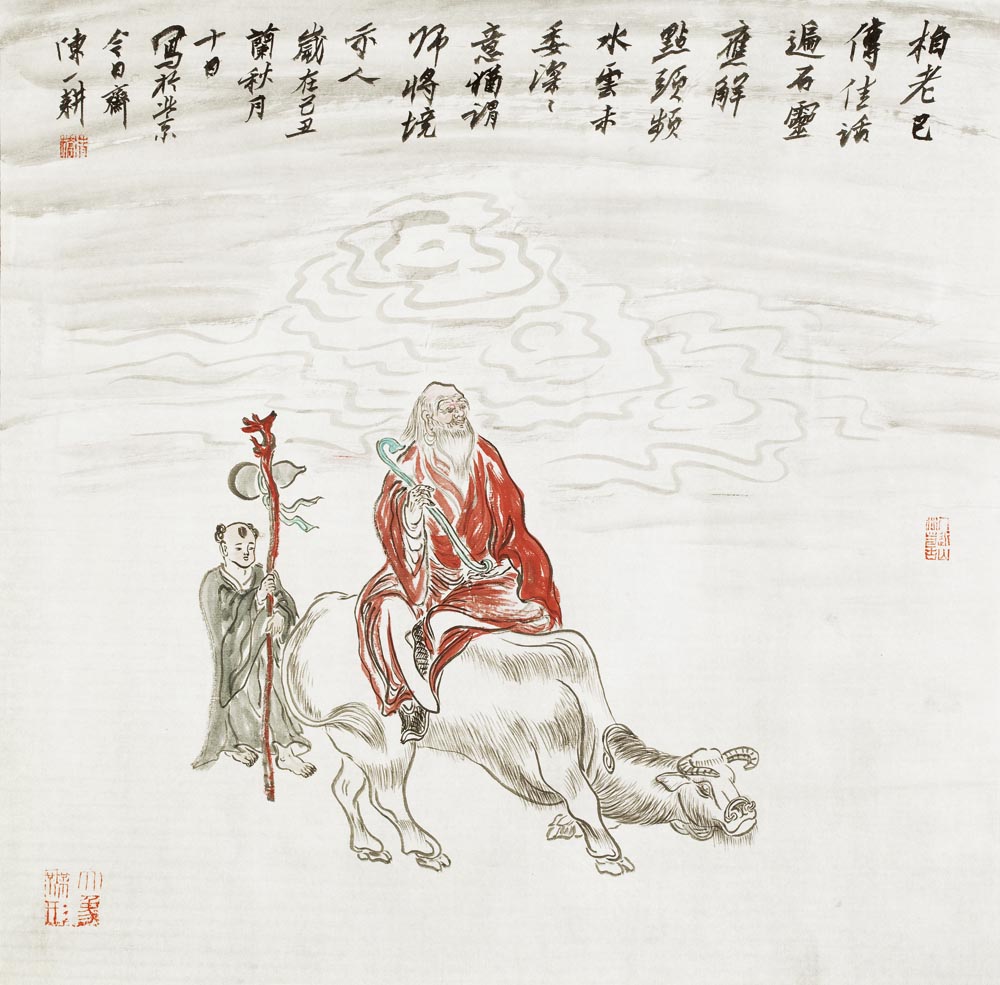 柏老已
傳佳話
遍石靈
應解
點頭頻
水雲未
委深〻
意猶謂
師將境
示人
歲在己丑
蘭秋月
十日
寫於北京
今日齋
陳一耕
大象
無形